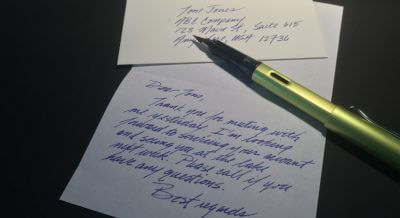 Tom Jones
ABC Company
123 Main St, Suite 615
USA 12736
Dear Tom,
Thank you for meeting with
me yesterday. I'm looking
forward to servicing your account
and seeing you at the
next week. Please call if you
have any questions.
Best regards